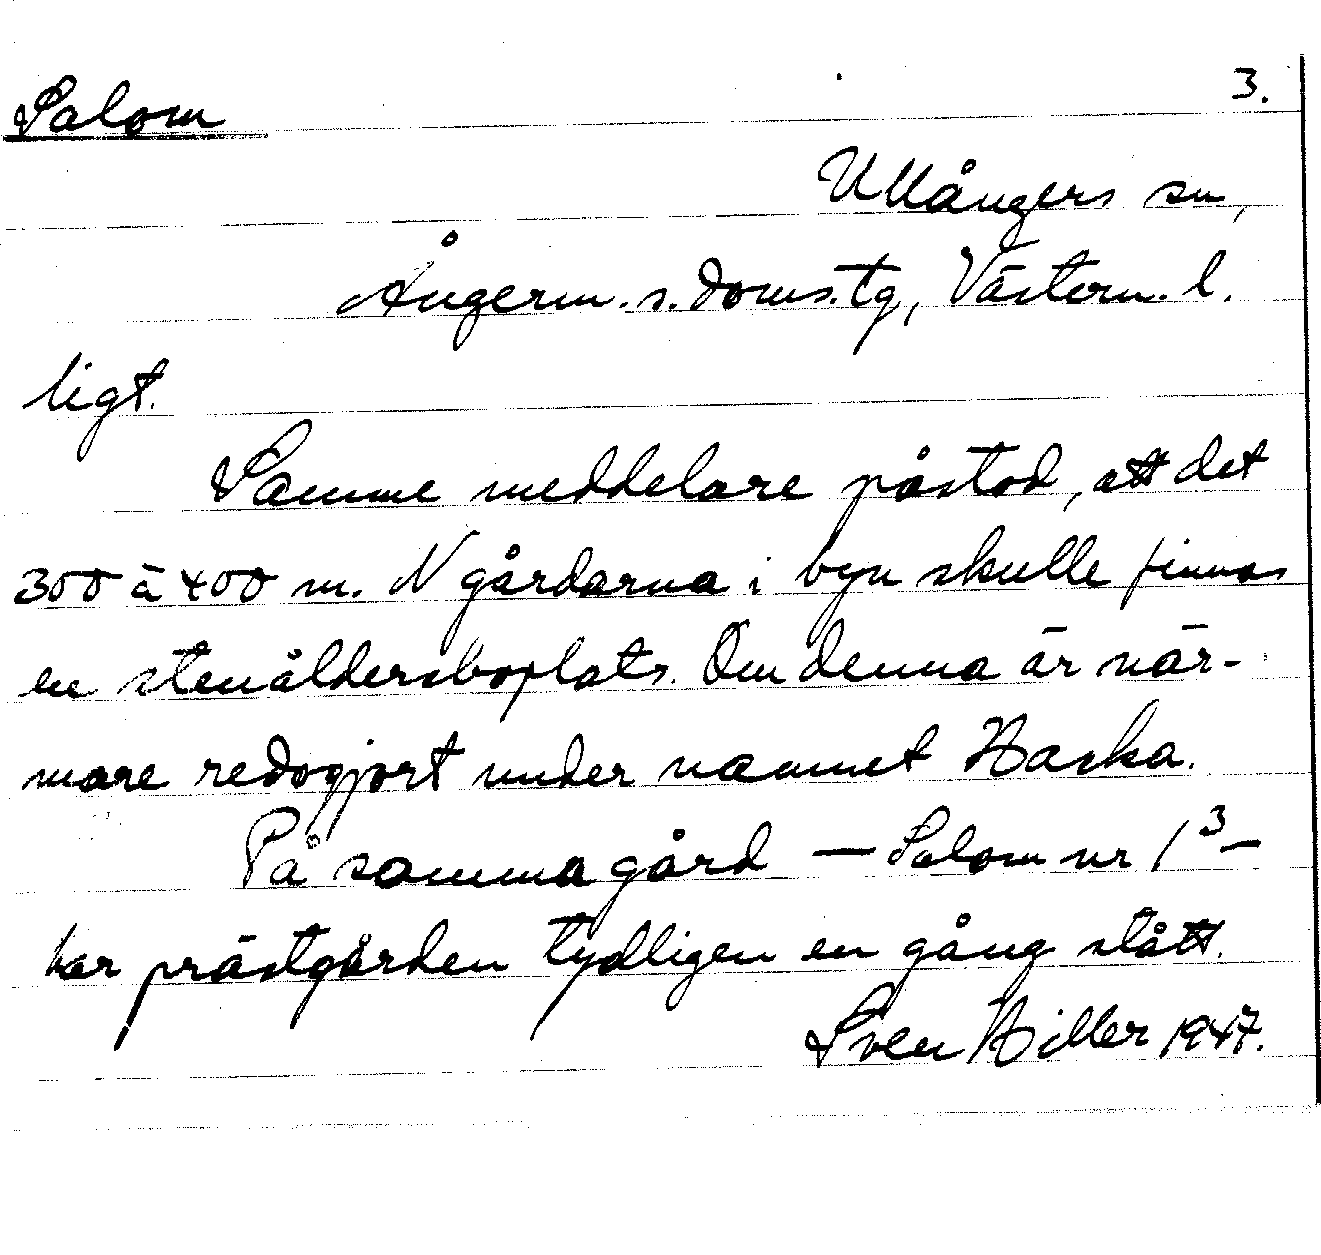 Salom
3.
Ullångers sn,
Ångerm. s. doms.tg, Västern. l.
ligt.
Samme meddelare påstod, att det
300 à 400 m. N gårdarna i byn skulle finnas
en stenåldersboplats. Om denna är när-
mare redogjort under namnet Haska.
På samma gård — Salom nr 1³ —
har prästgården tydligen en gång stått.
Sven Hiller 1947.